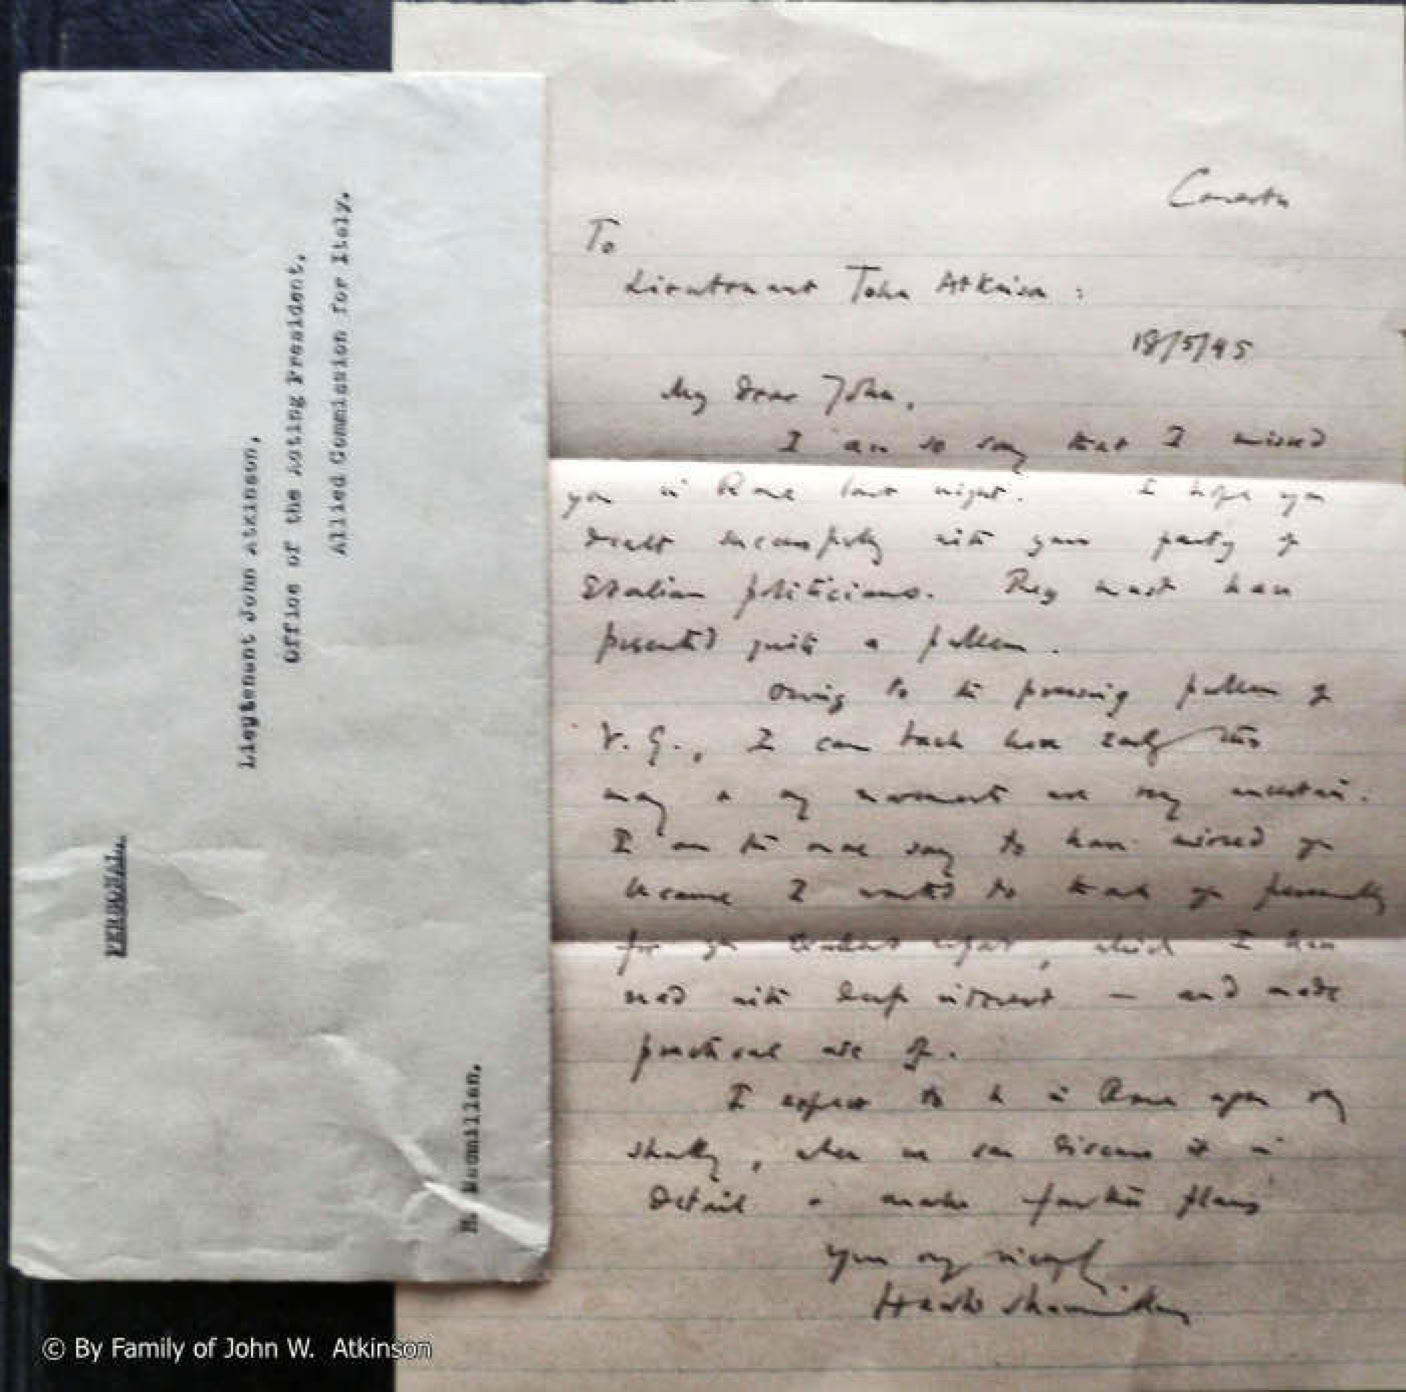 PERSONAL.
Lieutenant John Atkinson,
Office of the Acting President,
Allied Commission for Italy.
H. Macmillan.
Caserta
To
Lieutenant John Atkinson :
18/5/45
My dear John,
I am so sorry that I missed
you in Rome last night. I hope you
dealt successfully with your party of
Italian politicians. They must have
presented quite a problem.
Owing to the pressing problem of
V. G., I came back here early this
my movements are very uncertain.
I am the more sorry to have missed you
because I wanted to thank you personally
for your excellent report, which I have
read with deep interest — and made
practical use of.
I expect to be in Rome again very
shortly, when we can discuss it in
detail & make further plans
Yours very sincerely
Harold Macmillan
© By Family of John W. Atkinson